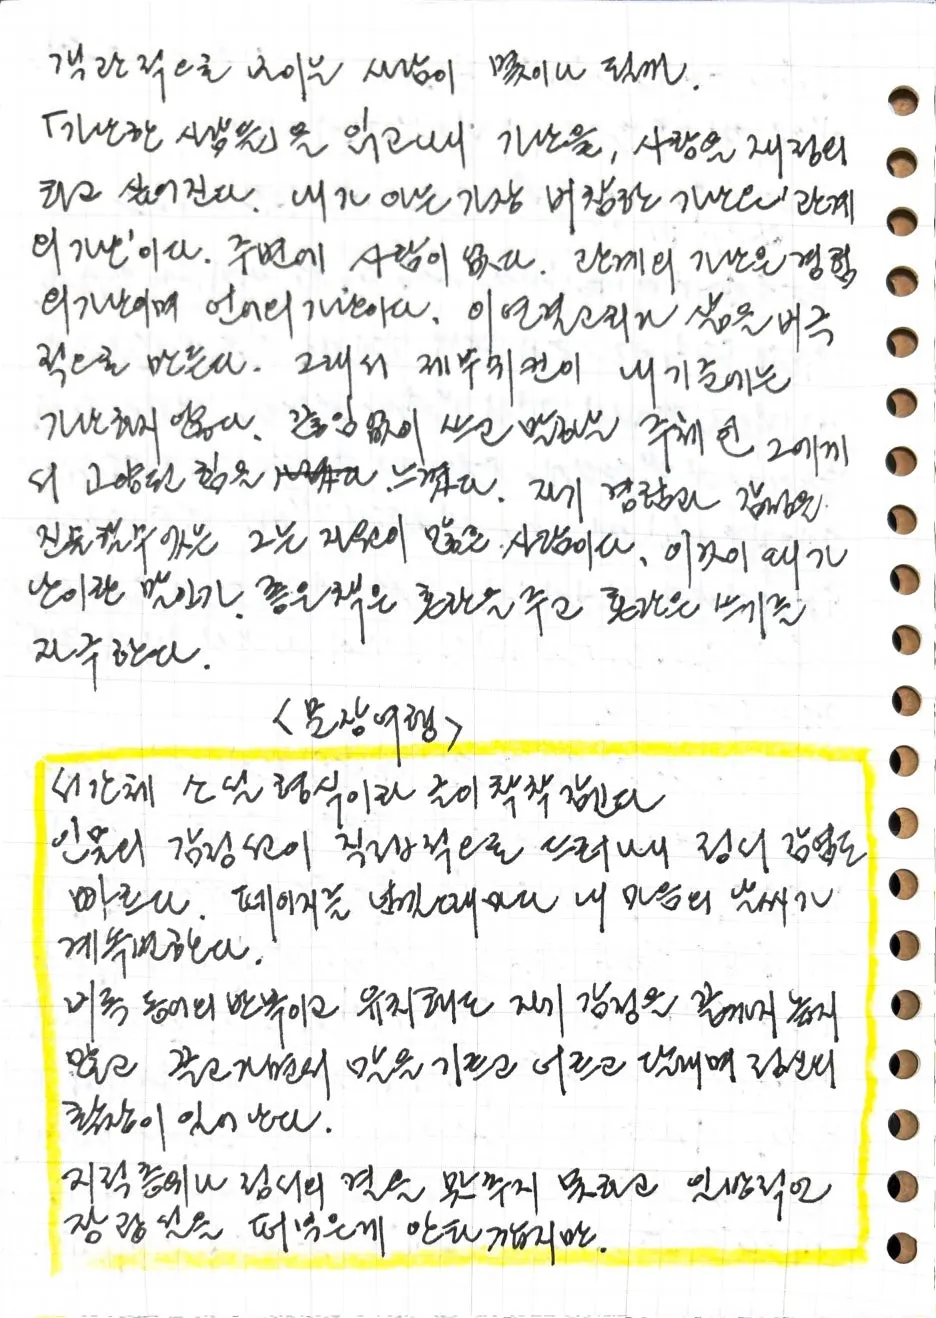 객관적으로 보이는 사람이 몇이나 될까.
「가난한 사람들」을 읽고나니 가난을, 사랑을 재정의
하고 싶어진다. 내가 아는 가장 비참한 가난은 '관계
의 가난'이다. 주변에 사람이 없다. 관계의 가난은 경험
의 가난이며 언어의 가난이다. 이 연결고리가 삶을 비극
적으로 만든다. 그래서 제부쉬킨이 내 기준에는
가난하지 않다. 끊임없이 쓰고 말하는 주체인 그에게
서 고양된 힘을 느꼈다. 자기 경험과 감정을
진술할 수 있는 그는 자원이 많은 사람이다. 이것이 왜 가
난이란 말인가. 좋은 책은 혼란을 주고 혼란은 쓰기를
자극한다.
<문장여행>
서간체 소설 형식이라 술이 착착 감긴다
인물의 감정선이 직접적으로 드러나니 정서 감염도
빠르다. 페이지를 넘길때마다 내 마음의 날씨가
계속변한다.
비록 동어의 반복이고 유치해도 자기 감정을 끝까지 놓지
않고 끌고가면서 말을 기르고 어르고 달래며 정신의
확장이 일어난다.
지적 충에나 정서의 결을 맞추지 못하고 일방적인
장광설을 떠벌리는게 안타깝지만.